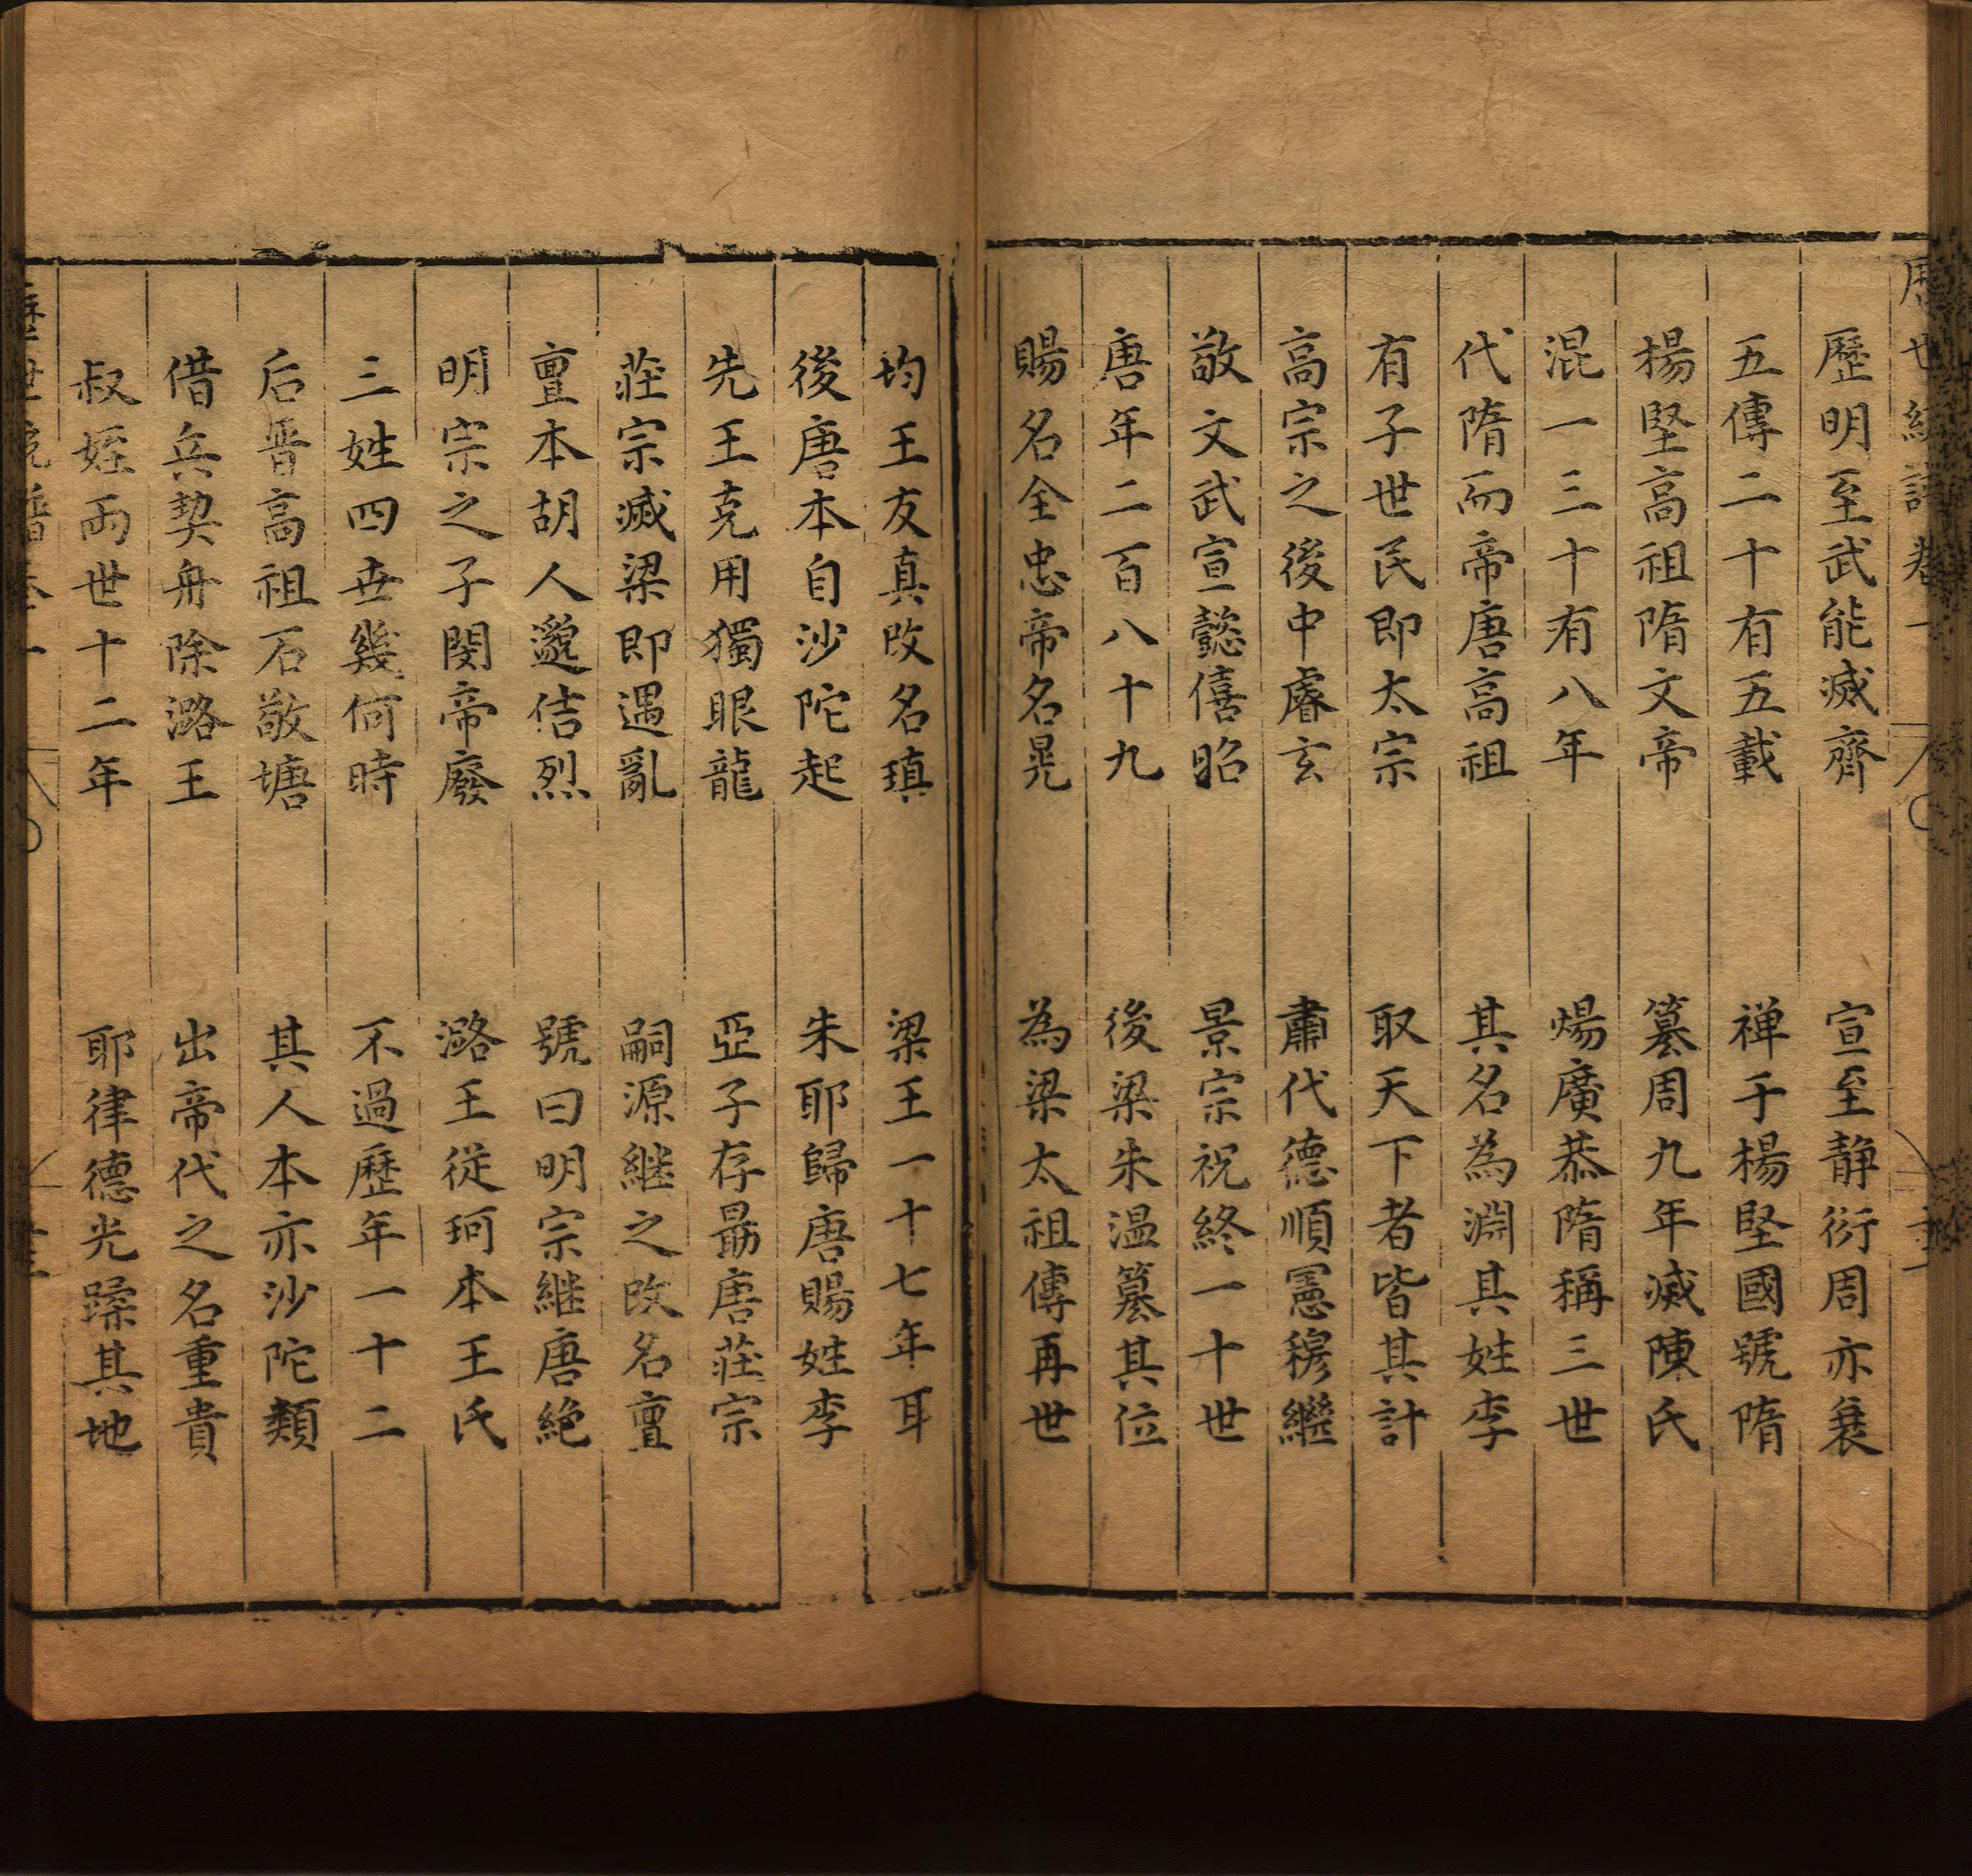 歷明至武能滅齊　宣至靜衍周亦衰
五傳二十有五載　禅于楊堅國號隋
楊堅高祖隋文帝　篡周九年滅陳氏
混一三十有八年　煬廣恭隋稱三世
代隋而帝唐高祖　其名為淵其姓李
有子世民即太宗　取天下者皆其計
高宗之後中睿玄　肅代德順憲穆繼
敬文武宣懿僖昭　景宗祝終一十世
唐年二百八十九　後梁朱温篡其位
賜名全忠帝名晃　為梁太祖傳再世
均王友真改名瑱　梁王一十七年耳
後唐本自沙陀起　朱耶歸唐賜姓李
先王克用獨眼龍　亞子存朂唐莊宗
莊宗滅梁即遇亂　嗣源継之改名亶
亶本胡人邈佶烈　號曰明宗継唐絶
明宗之子閔帝廢　潞王從珂本王氏
三姓四世幾何時　不過歷年一十二
后晋高祖石敬塘　其人本亦沙陀類
借兵契丹除潞王　出帝代之名重貴
叔姪兩世十二年　耶律德光蹂其地